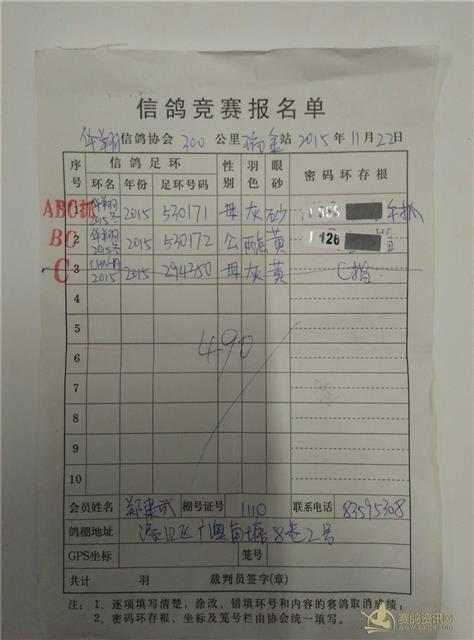 信鸽竞赛报名单
华翔信鸽协会 300 公里瑞金站 2015年11月22日
序号 信鸽足环 性别 羽色 眼砂 密码环存根
环名 年份 足环号码
ABC抓 华翔 2015 2015 530171 母 灰 砂
BC 2 华翔 2015 2015 530172 公 黄 126
C 3 2015 2015 294750 母 灰 黄 C
4
5
6
490
7
8
9
10
会员姓名 郑 棚号证号 1110 联系电话 83595308
鸽棚地址 广澳南塘8巷2号
GPS坐标 笼号
共计 羽 裁判员签字(章)
注：1、逐项填写清楚，涂改、错填环号和内容的赛鸽取消成绩；
2、密码环存根、坐标及笼号栏由协会统一填写。
赛鸽资讯网